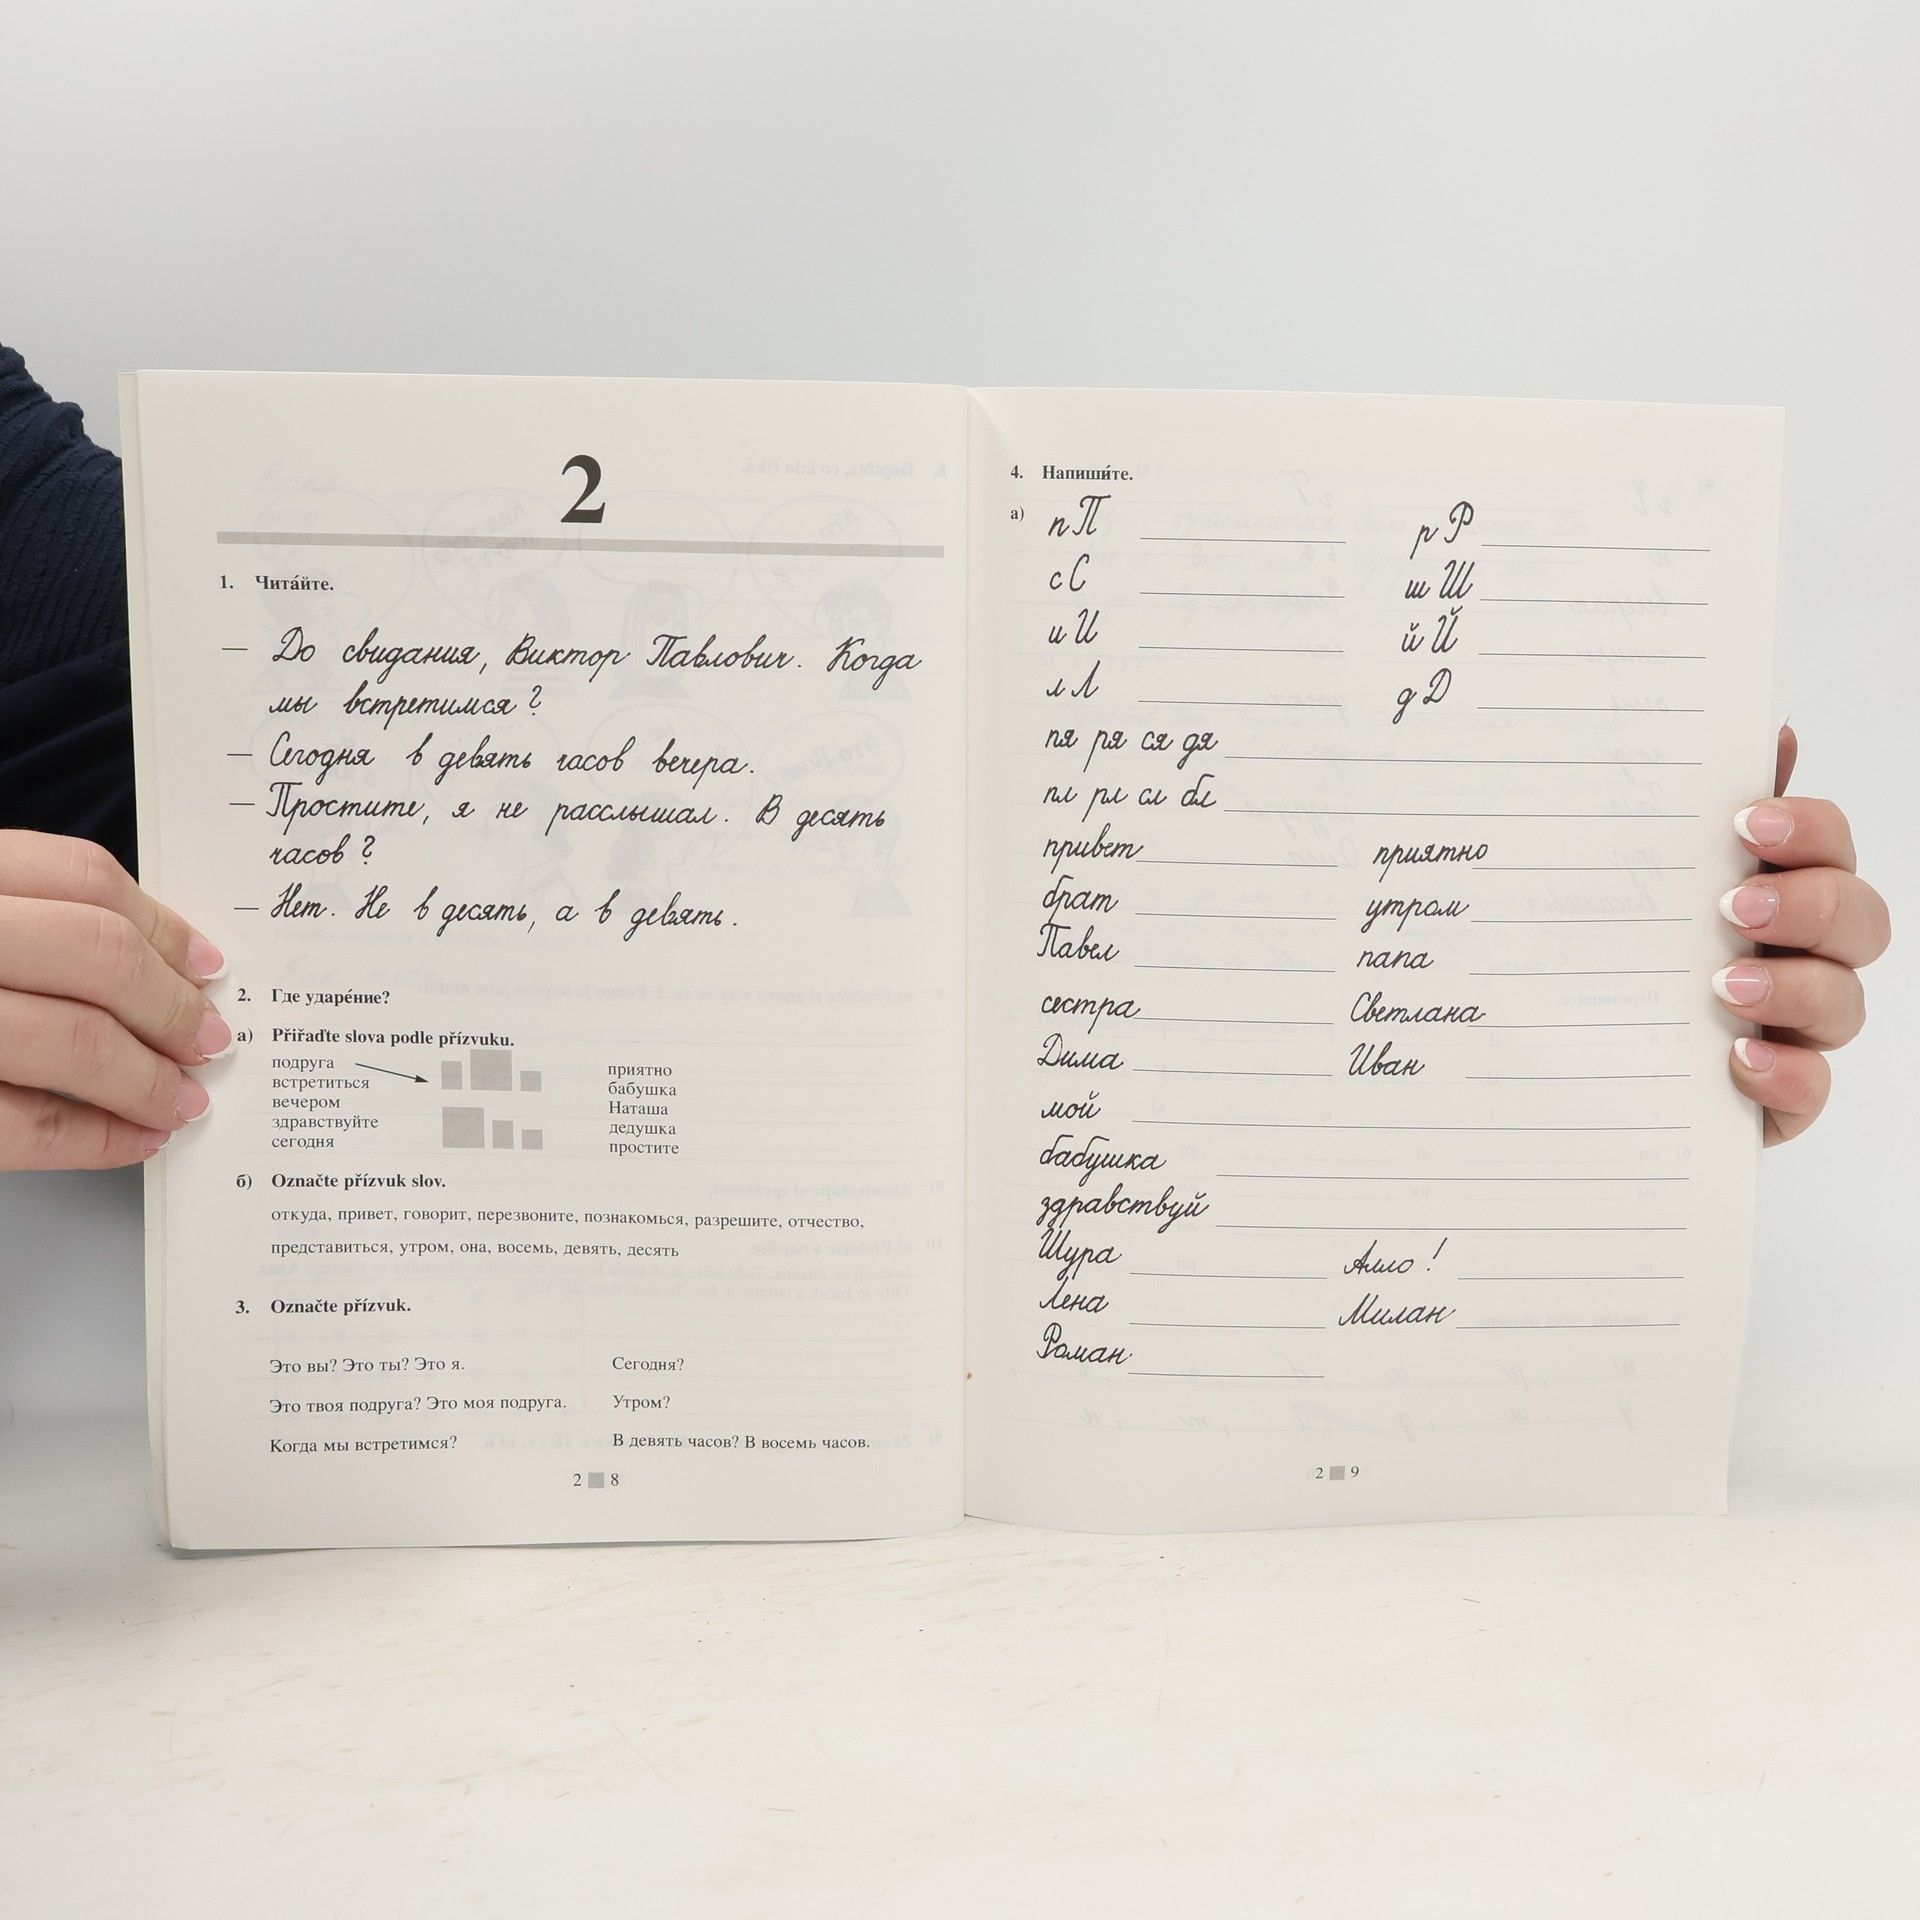 2
1. Чита́йте.
— До свидания, Виктор Павлович. Когда
мы встретимся?
— Сегодня в девять часов вечера.
— Простите, я не расслышал. В десять
часов?
— Нет. Не в десять, а в девять.
2. Где ударе́ние?
а) Přiřaďte slova podle přízvuku.
подруга
встретиться
вечером
здравствуйте
сегодня
приятно
бабушка
Наташа
дедушка
простите
б) Označte přízvuk slov.
откуда, привет, говорит, перезвоните, познакомься, разрешите, отчество,
представиться, утром, она, восемь, девять, десять
3. Označte přízvuk.
Это вы? Это ты? Это я. Сегодня?
Это твоя подруга? Это моя подруга. Утром?
Когда мы встретимся? В девять часов? В восемь часов.
2 8
4. Напиши́те.
а) п П р Р
с С ш Ш
и И й Й
л Л д Д
пя ря ся дя
пл рл сл бл
привет приятно
брат утром
Павел папа
сестра Светлана
Дима Иван
мой
бабушка
здравствуй
Шура Алло!
Лена Милан
Роман
2 9